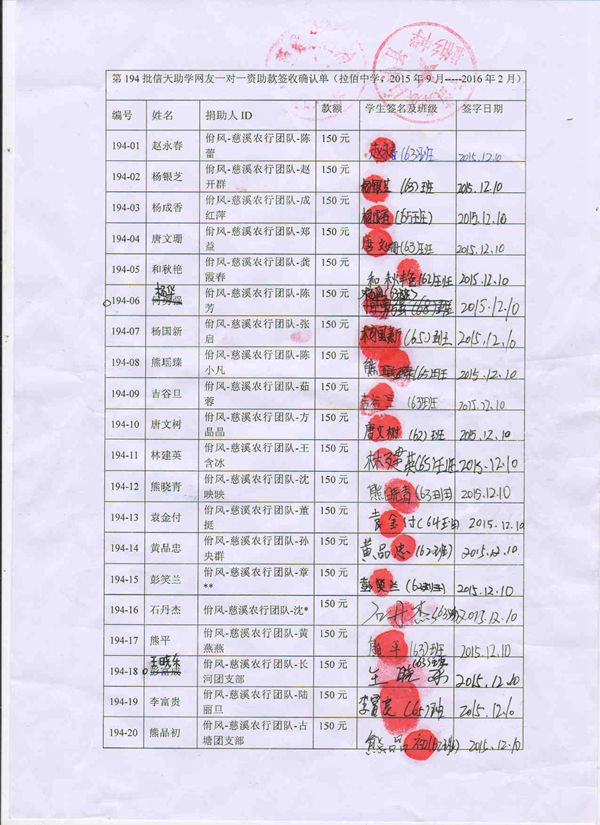 第 194 批信天助学网友一对一资助款签收确认单（拉佰中学，2015 年 9 月-----2016 年 2 月）
编号 姓名 捐助人 ID 款额 学生签名及班级 签字日期
194-01 赵永春 佾风-慈溪农行团队-陈蕾 150 元 (63班 2015.12.10
194-02 杨银芝 佾风-慈溪农行团队-赵开群 150 元 杨银芝 (63)班 2015.12.10
194-03 杨成香 佾风-慈溪农行团队-成红萍 150 元 杨成香 (65班) 2015.12.10
194-04 唐文珊 佾风-慈溪农行团队-郑益 150 元 唐文珊 (63班 2015.12.10
194-05 和秋艳 佾风-慈溪农行团队-龚霞春 150 元 和秋艳 (62)班 2015.12.10
194-06 杨华 佾风-慈溪农行团队-陈芳 150 元 2015.12.10
194-07 杨国新 佾风-慈溪农行团队-张启 150 元 杨国新 (65)班 2015.12.10
194-08 熊瑶臻 佾风-慈溪农行团队-陈小凡 150 元 熊 2015.12.10
194-09 吉谷旦 佾风-慈溪农行团队-茹蓉 150 元 吉谷旦 (63班 2015.12.10
194-10 唐文树 佾风-慈溪农行团队-方晶晶 150 元 唐文树 (62)班 2015.12.10
194-11 林建英 佾风-慈溪农行团队-王含冰 150 元 林建英 (65)班 2015.12.10
194-12 熊晓青 佾风-慈溪农行团队-沈映映 150 元 熊晓青 (63班) 2015.12.10
194-13 袁金付 佾风-慈溪农行团队-董挺 150 元 袁金付 (64班) 2015.12.10
194-14 黄品忠 佾风-慈溪农行团队-孙央群 150 元 黄品忠 (62班) 2015.12.10
194-15 彭笑兰 佾风-慈溪农行团队-章** 150 元 彭笑兰 2015.12.10
194-16 石丹杰 佾风-慈溪农行团队-沈* 150 元 石丹杰 2015.12.10
194-17 熊平 佾风-慈溪农行团队-黄燕燕 150 元 熊平 (63)班 2015.12.10
194-18 王晓东 佾风-慈溪农行团队-长河团支部 150 元 王晓东 (63)班 2015.12.10
194-19 李富贵 佾风-慈溪农行团队-陆丽旦 150 元 李富贵 (65)班 2015.12.10
194-20 熊品初 佾风-慈溪农行团队-古塘团支部 150 元 熊品初 2015.12.10